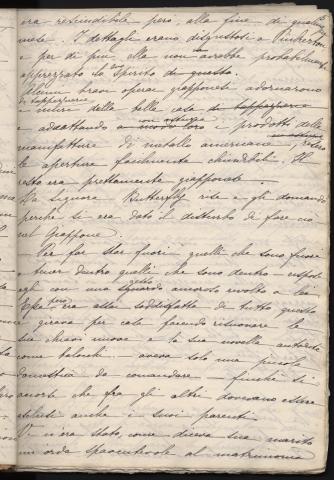 era rescindibile però, alla fine di qualche
mese. I dettagli erano disgustosi a Pinkerton
e per di più ella non avrebbe probabilmente
apprezzato lo spirito di questo.
Alcuni bravi operai giapponesi adornarono
di tappezzerie
i muri della bella casa di tappezzerie
con astuzia
e adattando a modo loro i prodotti delle
manifatture di metallo americane, resero
le aperture facilmente chiudibili. Il
resto era prettamente giapponese.
La signora Butterfly rise e gli domandò
perchè si era dato il disturbo di fare ciò
nel Giappone.
Per far star fuori quelli che sono fuori
e tener dentro quelli che sono dentro - rispose
egli con uno sguardo amoroso rivolto a lei
Essa però era assai soddisfatta di tutto questo
e girava per casa facendo risuonare le
sue chiavi nuove e la sua novella autorità
come balocchi - aveva solo una piccola
domestica da comandare - finchè si
accorse che fra gli altri dovevano essere
esclusi anche i suoi parenti
Ve n'era stata, come diceva suo marito
un'orda spaventevole al matrimonio